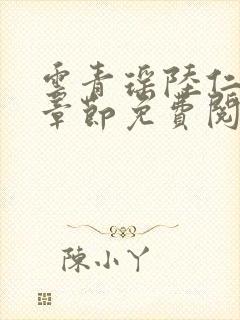 雲青瑶陸仁
章節免費閱
陳小丫